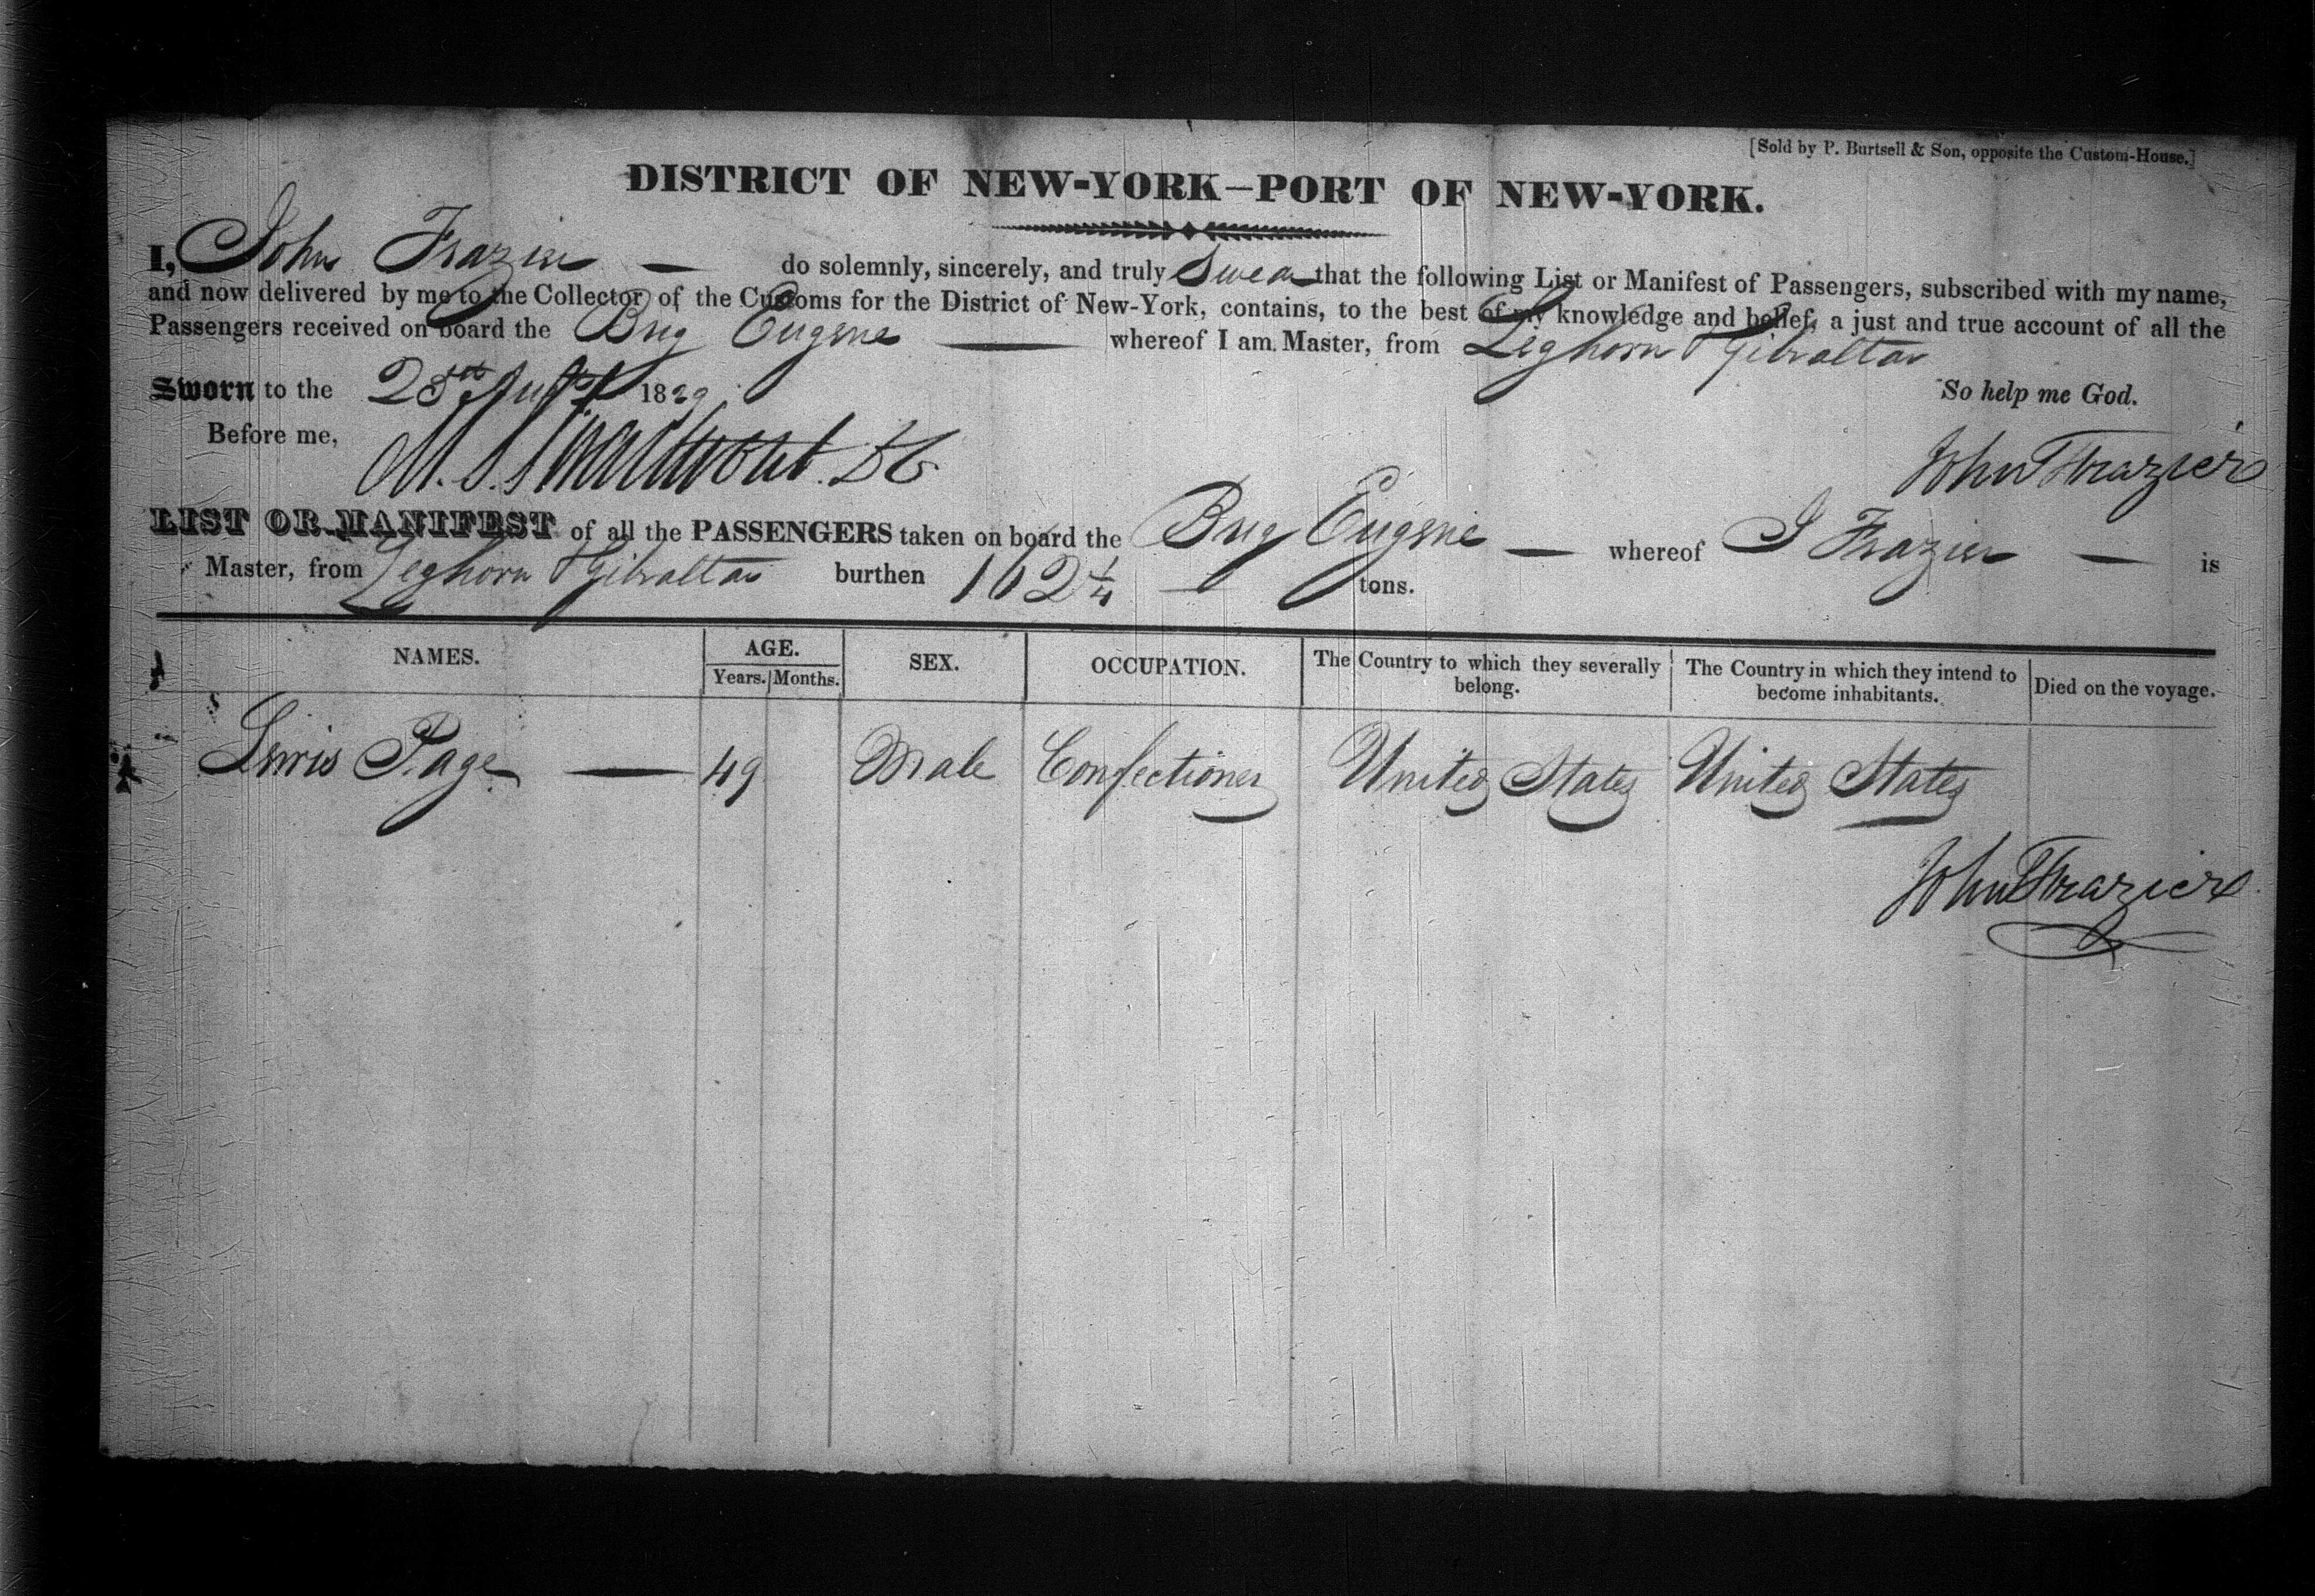 [Sold by P. Burtsell & Son, opposite the Custom-House.]
DISTRICT OF NEW-YORK—PORT OF NEW-YORK.
I, John Frazier — do solemnly, sincerely, and truly Swear that the following List or Manifest of Passengers, subscribed with my name,
and now delivered by me to the Collector of the Customs for the District of New-York, contains, to the best of my knowledge and belief, a just and true account of all the
Passengers received on board the Brig Eugene — whereof I am Master, from Leghorn & Gibraltar
Sworn to the 25th 1829 So help me God.
Before me, M. Swartwout John Frazier
LIST OR MANIFEST of all the PASSENGERS taken on board the Brig Eugene — whereof J Frazier — is
Master, from Leghorn & Gibraltar burthen 162 1/4 — tons.
NAMES. AGE. Years. Months. SEX. OCCUPATION. The Country to which they severally belong. The Country in which they intend to become inhabitants. Died on the voyage.
Lewis Page — 49 Male Confectioner United States United States
John Frazier